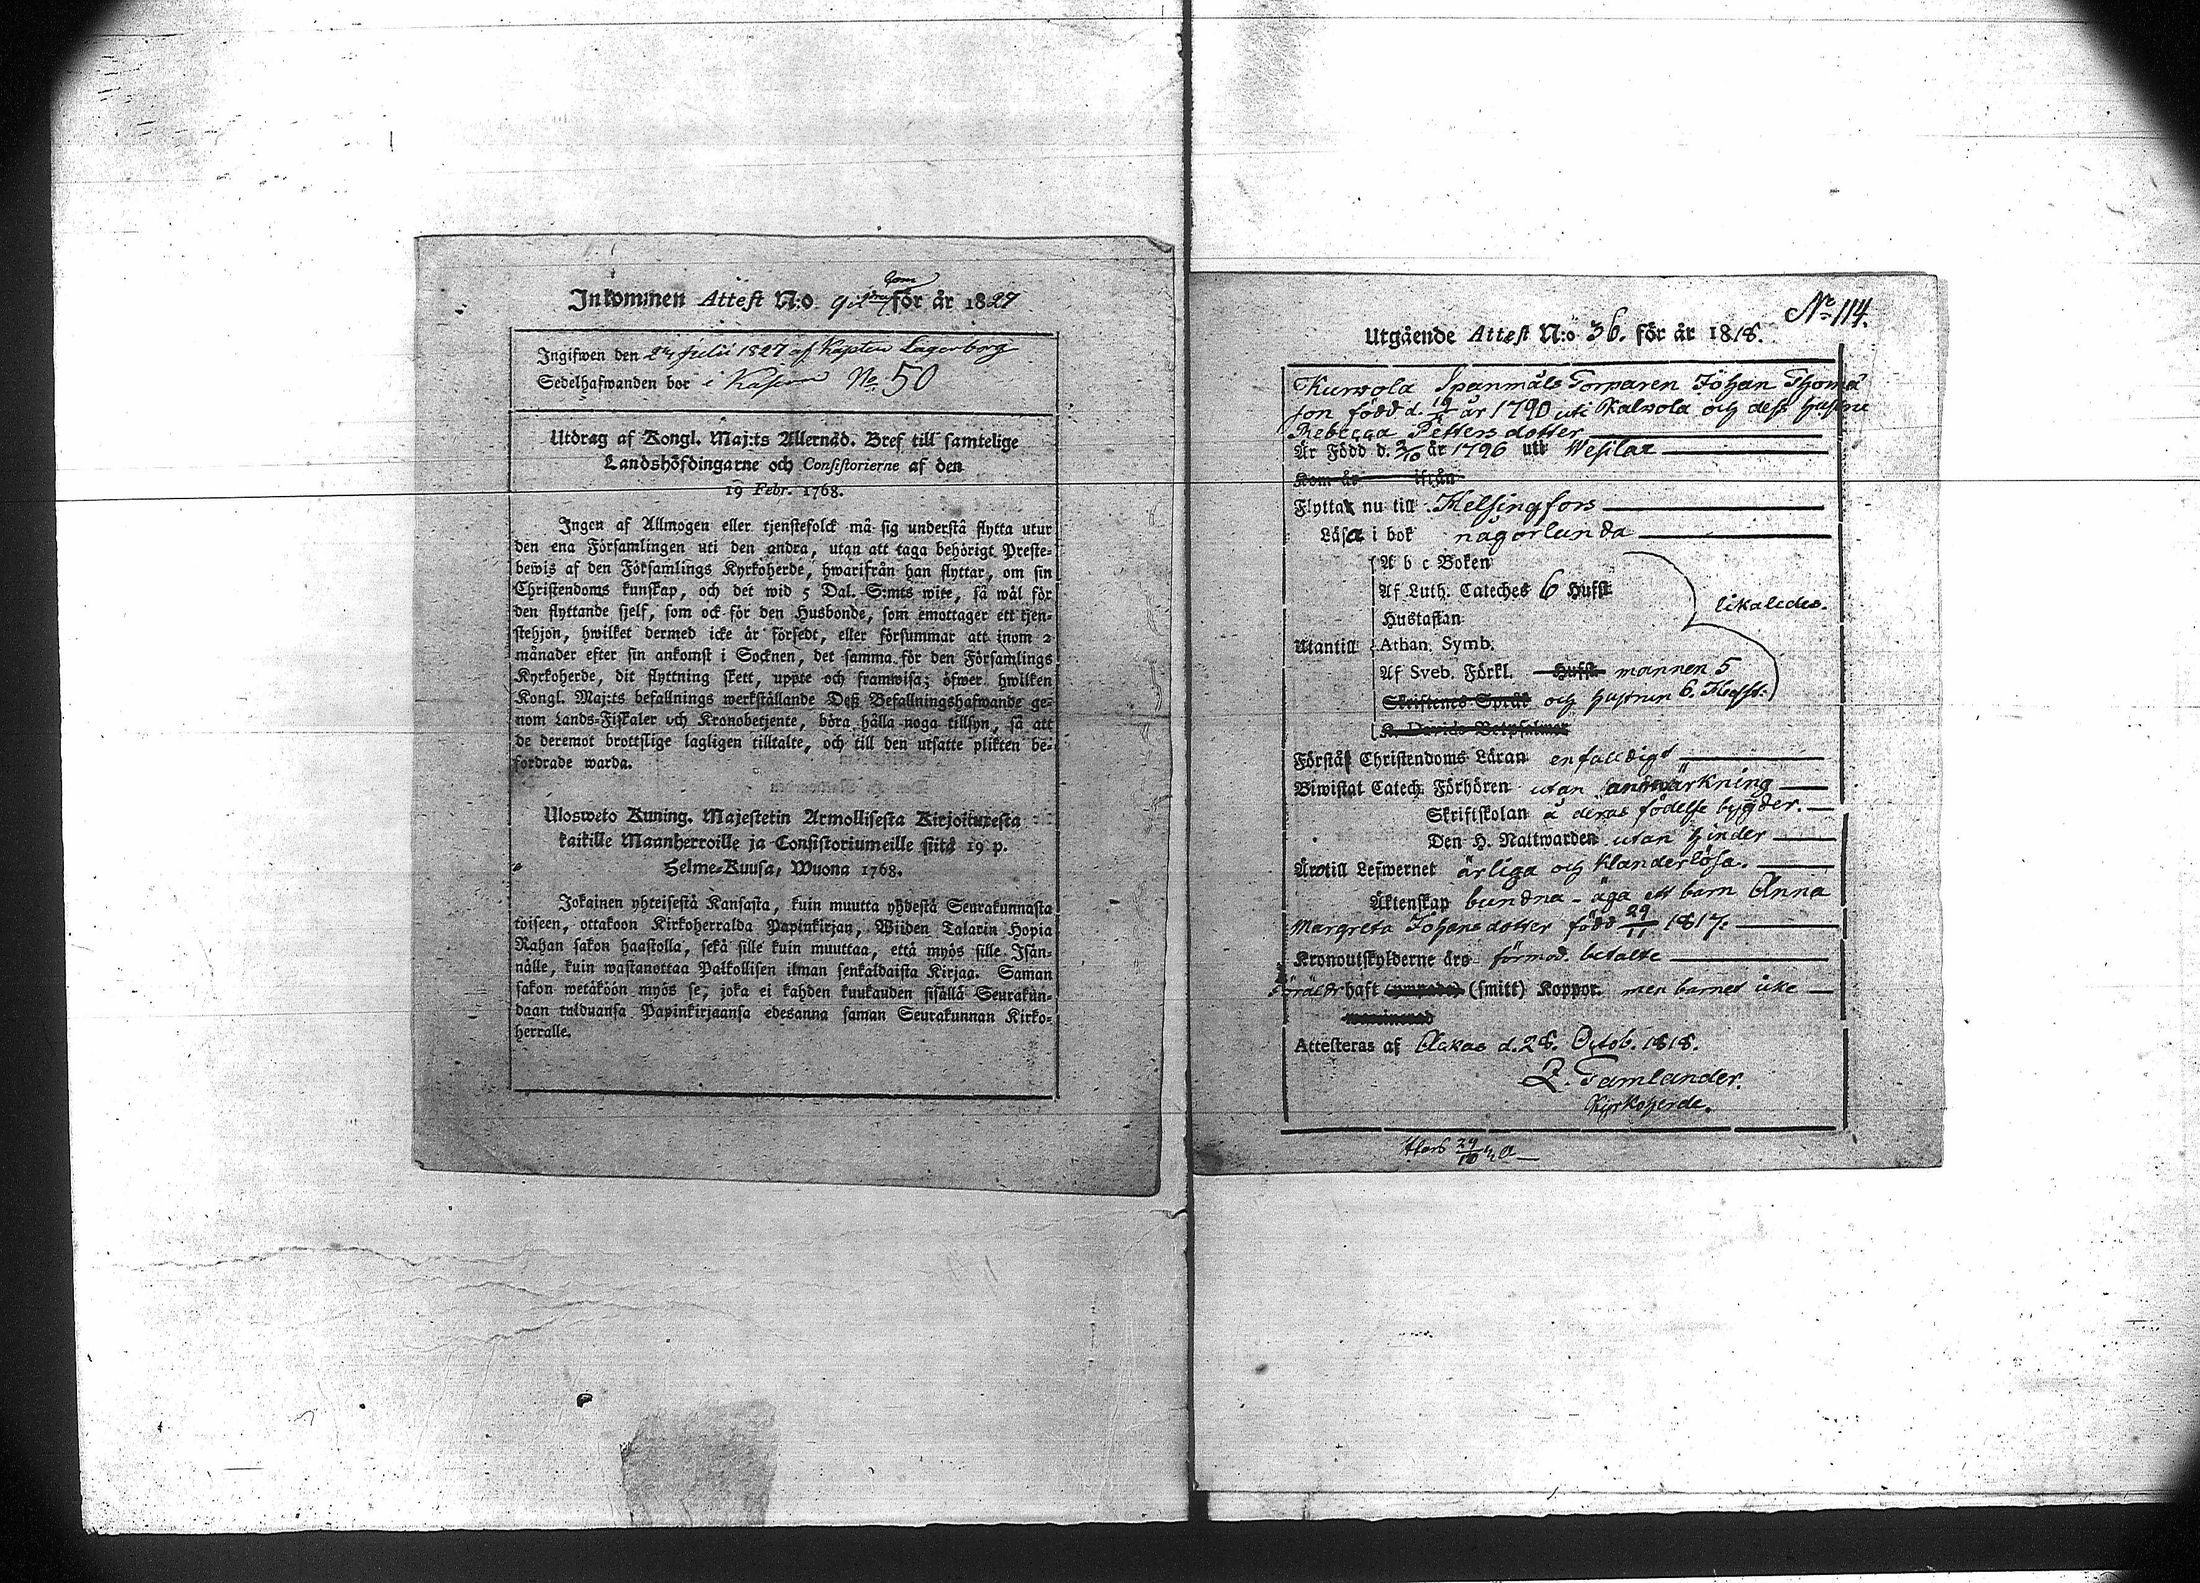 Inkommen Attest N:o för år 1827
Ingifwen den 24 Julii 1827 af Kapten Lagerborg
Sedelhafwanden bor i Kasern No 50
Utdrag af Kongl. Maj:ts Allernåd. Bref till samtelige
Landshöfdingarne och Consistorierne af den
19 Febr. 1768.
Ingen af Allmogen eller tjenstefolck må sig understå flytta utur
den ena Församlingen uti den andra, utan att taga behörigt Preste-
bewis af den Församlings Kyrkoherde, hwarifrån han flyttar, om sin
Christendoms kunskap, och det wid 5 Dal. S:mts wite, så wäl för
den flyttande sjelf, som ock för den Husbonde, som emottager ett tjen-
stehjon, hwilket dermed icke är försedt, eller försummar att inom 2
månader efter sin ankomst i Socknen, det samma för den Församlings
Kyrkoherde, dit flyttning skett, uppte och framwisa; öfwer hwilken
Kongl. Maj:ts befallnings werkställande Deß Befallningshafwande ge-
nom Lands-Fiskaler och Kronobetjente, böra hålla noga tillsyn, så att
de deremot brottslige lagligen tilltalte, och till den utsatte plikten be-
fordrade warda.
Ulosweto Kuning. Majestetin Armollisesta Kirjoituxesta
kaikille Maanherroille ja Consistoriumeille siitä 19 p.
Helme-Kuusa, Wuona 1768.
Jokainen yhteisestä Kansasta, kuin muutta yhdestä Seurakunnasta
toiseen, ottakoon Kirkoherralda Papinkirjan, Wiiden Talarin Hopia
Rahan sakon haastolla, sekä sille kuin muuttaa, että myös sille Isän-
nälle, kuin wastanottaa Palkollisen ilman senkaldaista Kirjaa. Saman
sakon wetäköön myös se, joka ei kahden kuukauden sisällä Seurakun-
daan tulduansa Papinkirjaansa edesanna saman Seurakunnan Kirko-
herralle.
No 114.
Utgående Attest N:o 36. för år 1818.
Kurwola Spanmåls Torparen Johan Thomæ
son född d. 19 år 1790 uti Kalwola och dess hustru
Rebecca Pettersdotter
Är Född d. 2/10 år 1796 uti Wesilax
Kom år ifrån
Flyttar nu till Helsingfors
Läsa i bok någorlunda
A b c Boken
Af Luth. Cateches 6 Hufst
likaledes.
Hustaflan
Utantill Athan. Symb.
Af Sveb. Förkl. Hufst mannen 5
Skriftenes Språk och hustrun 6. Hufst.
K. Davids Botpsalmer
Förstå Christendoms Läran enfaldigt
Biwistat Catech. Förhören utan anmärkning
Skriftskolan å deras födelse bygder.
Den H. Nattwarden utan hinder
Äro till Lefwernet ärliga och klanderlösa.
Äktenskap bundna - äga ett barn Anna
Margreta Johansdotter född 29/11 1817.
Kronoutskylderne äro förmod. betalte
Föräldr haft (smitt) Koppor. men barnet icke
Attesteras af Ackas d. 28. Octob. 1818.
Z. Tamlander.
Kyrkoherde.